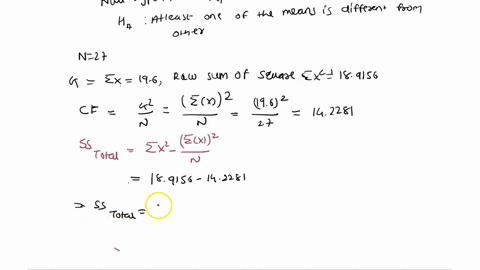 H_A : Atleast one of the means is different from
other
N=27
G = Σx = 19.6, Raw sum of square Σx² = 18.9156
CF = G²/N = (Σ(x))²/N = (19.6)²/27 = 14.2281
SS_Total = Σx² - (Σ(x))²/N
= 18.9156 - 14.2281
⇒ SS_Total =